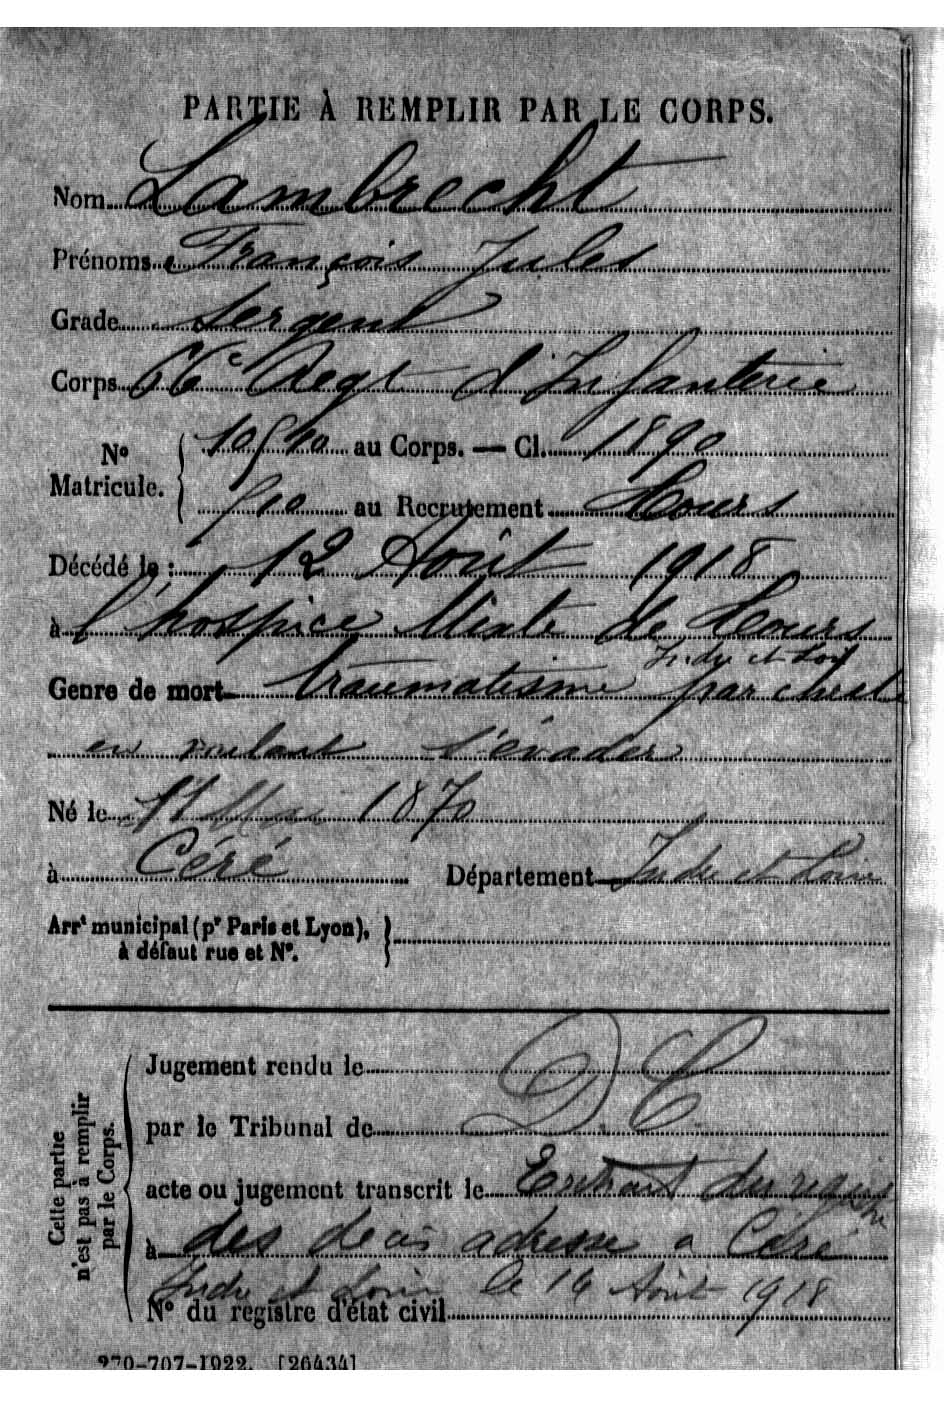 PARTIE À REMPLIR PAR LE CORPS.
Nom Lambrecht
Prénoms François Jules
Grade Sergent
Corps 66e Regt d'Infanterie
No Matricule. { 10510 au Corps. — Cl. 1890
910 au Recrutement Tours
Décédé le : 12 Août 1918
à l'hospice Mixte de Tours
Indre et Loire
Genre de mort traumatisme par chute
en voulant s'évader
Né le 11 Mai 1870
à Céré Département Indre et Loire
Arrt municipal (pr Paris et Lyon), }
à défaut rue et No.
Cette partie n'est pas à remplir par le Corps.
Jugement rendu le D.C.
par le Tribunal de
acte ou jugement transcrit le Extrait du registre
à des décès adressé a Céré
Indre et Loire le 14 Août 1918
No du registre d'état civil
270-707-1922. [26434]